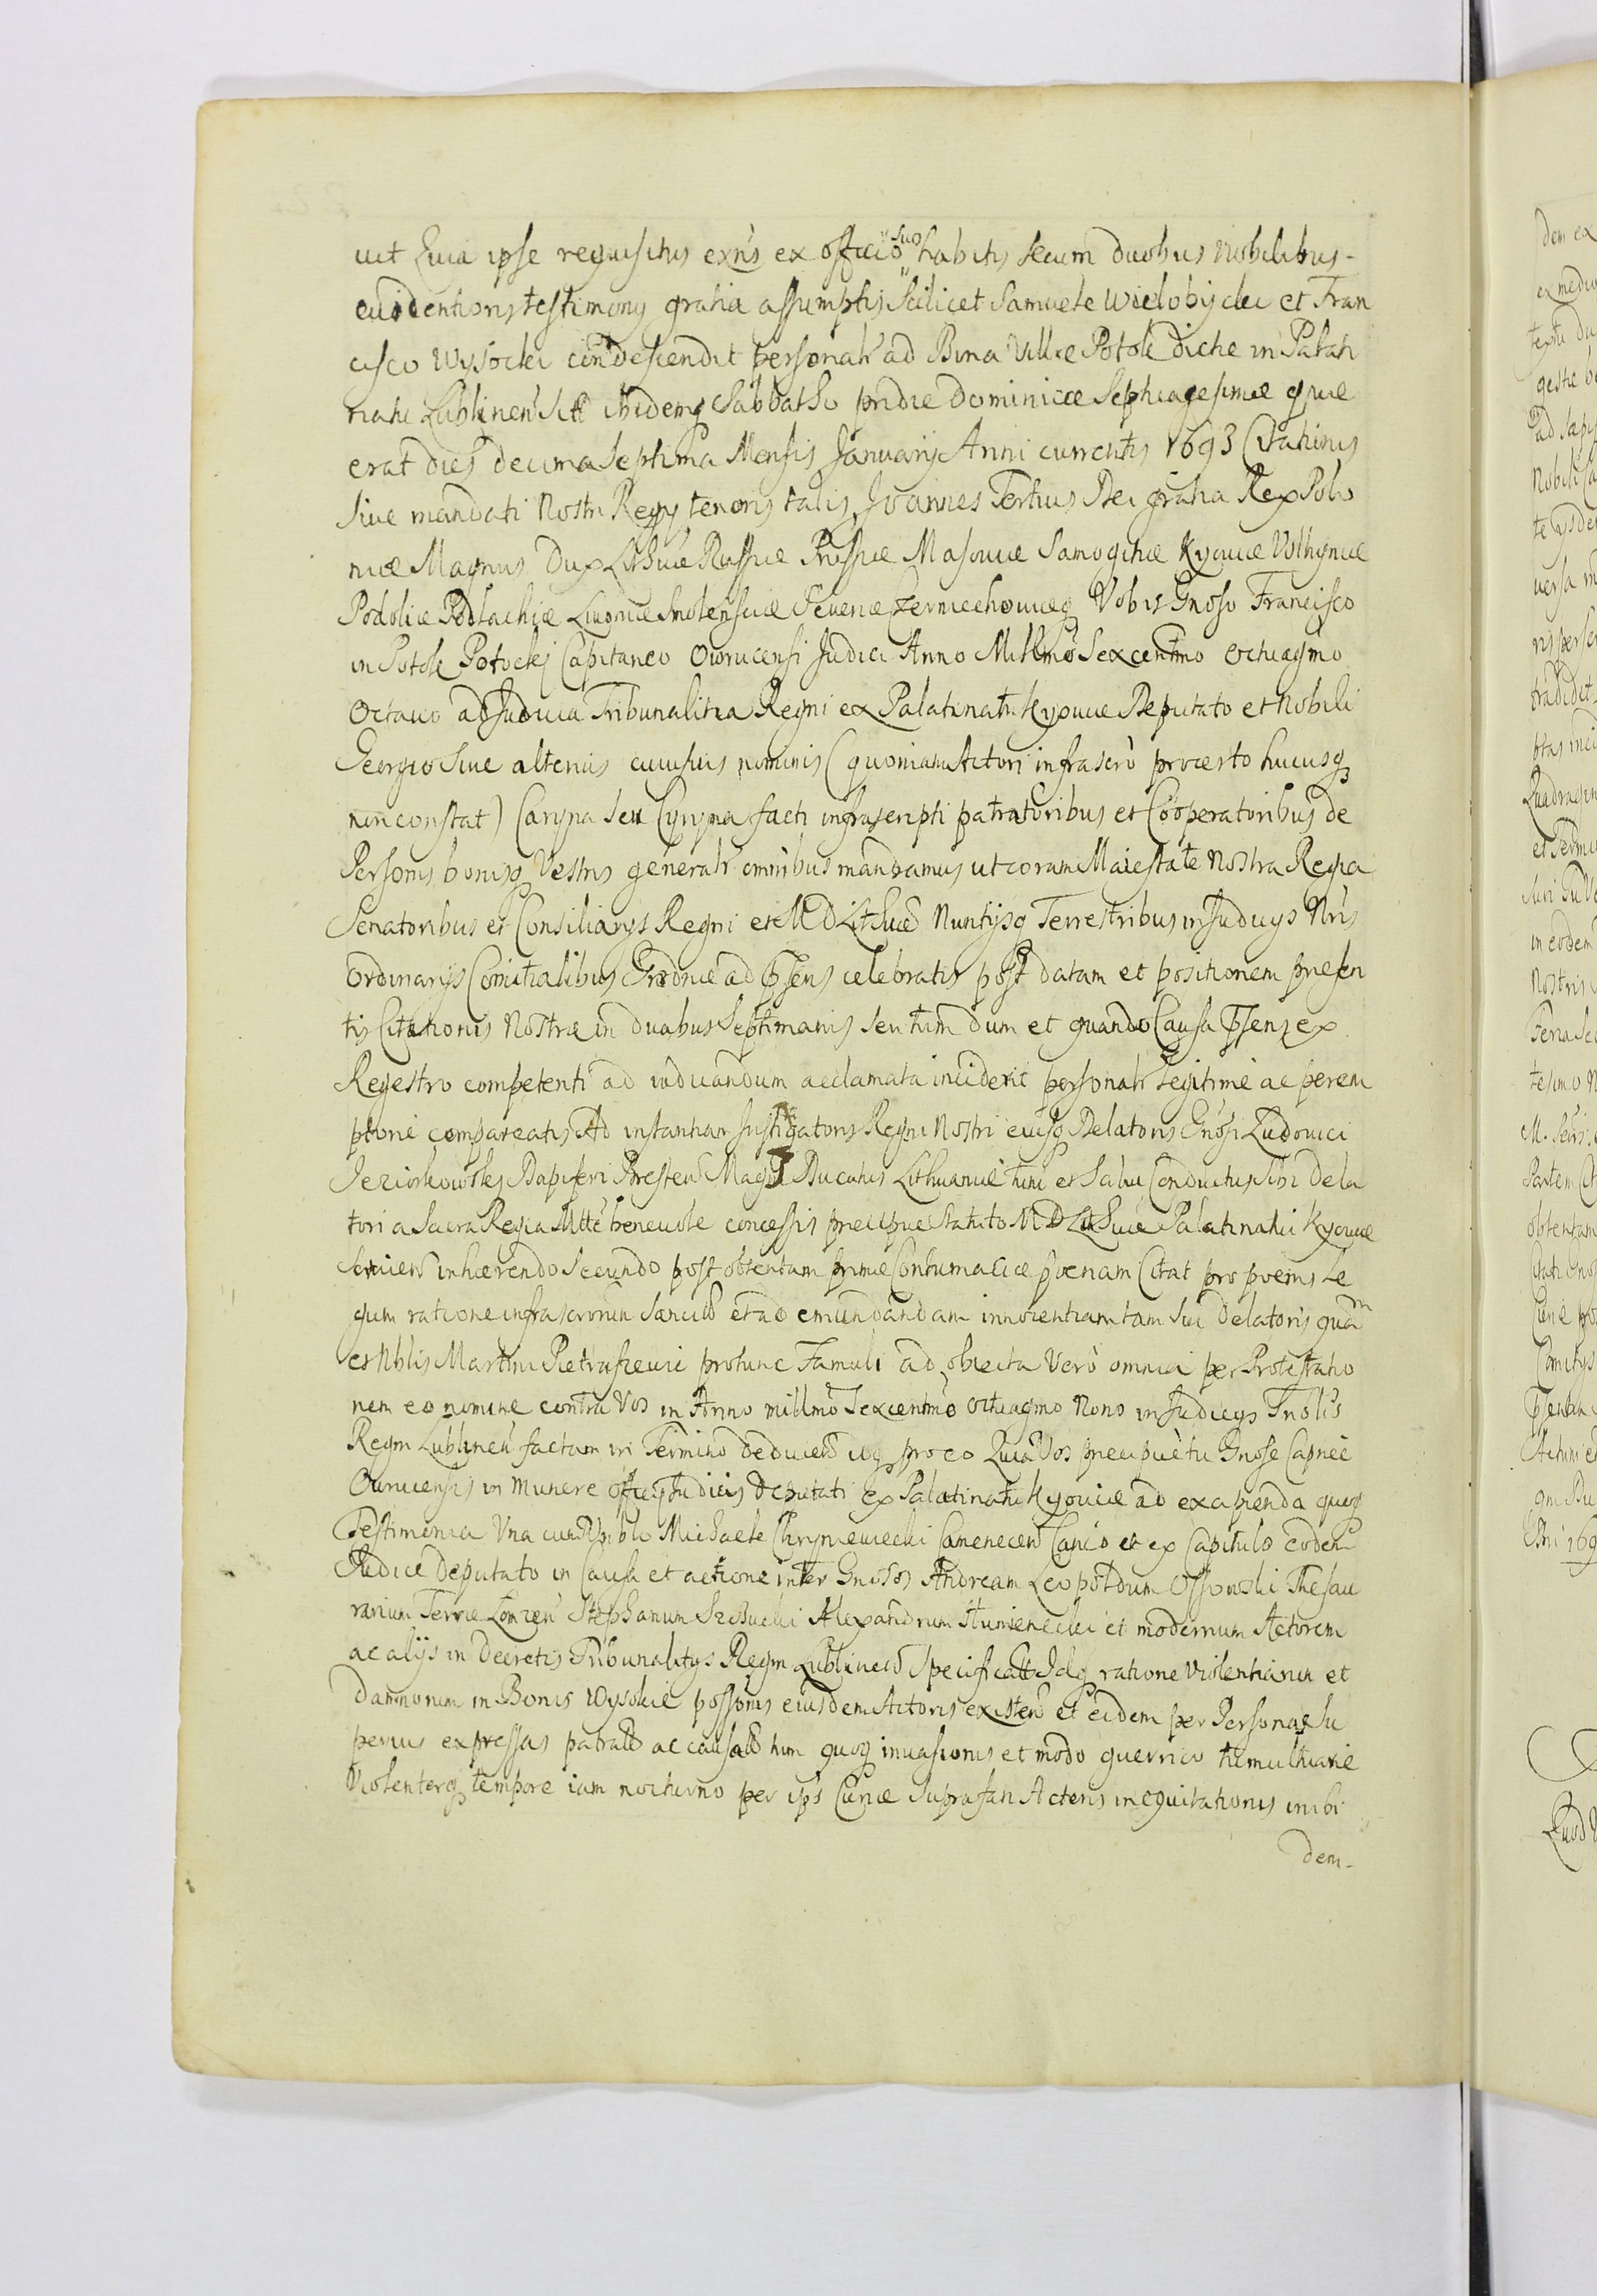 uit Quia ipse requisitus exñs ex officio suo habitis secum duobus Nobilibus-
euidentioris testimony gratia assumptis scilicet Samuele Wielobyckii et Fran
cisco Wysocki condescendit personalr ad Bona Villae Potok dictae in Palati
natu Lublinen Sitt ibidemq Sabbatho pridie Dominicae Septuagesimae quae
erat dies decima Septima Mensis Januarij Anni currentis 1693 Citationis
siue mandati Nostri Regij tenoris talis, Joannes Tertius Dei gratia Rex Polo
niae Magnus Dux Lithuae Russiae Prussiae Masouiae Samogitiae Kyouiae Volhyniae
Podoliae Podlachiae Liuoniae Smolensciae Seueriae Czerniechouiaeq Vobis Gnoso Francisco
in Potok Potockj Capitaneo Owrucensi Judici Anno Millmo Sexcentmo Octuagmo
Octauo ad Judicia Tribunalitia Regni ex Palatinatu Kyouiae Deputato et Nobili
Georgio Siue alterius cuiusuis nominis (quoniam Actori infrascrò procerto hucusq
non constat) Caryna seu Cyryna facti infrascripti patratoribus et Cooperatoribus de
Personis bonisq Vestris generalr omnibus mandamus ut coram Maiestate Nostra Regia
Senatoribus et Consiliarijs Regni et M D Lithuae Nuntijsq Terrestribus in Judicijs Nris
Ordinarijs Comitialibus Grodnae ad psens celebratis post datam et positionem presen
tis Citationis Nostrae in duabus Septimanis seu tum dum et quando Causa psens ex
Regestro competenti ad iudicandum acclamata inciderit personalr legitime ac perem
ptorie compareatis Ad instantiam Instigatoris Regni Nostri eiusq Delatoris Gnosi Ludouici
Jeziorkowskj Dapiferi Bresten Magni Ducatus Lithuaniae qui et Salui Conductus sibi Dela
tori a Sacra Regia Mtte beneuole concessis precipue statuto M D Lithuae Palatinatui Kyouiae
seruien inhaerendo Secundo post obtentam primae Contumaciae poenam Citat pro poenis Le
gum ratione infrascrorum sancitis et ad emundandam innocentiam tam sui Delatoris quam
et Nblis Martini Pietrasieuic protunc Famuli ad obiecta Verò omnia per Protestatio
nem eo nomine contra Vos in Anno millmo Sexcentmo Octuagmo Nono in Judicijs Tnolis
Regni Lublinen factam in Termino deducen idq pro eo Quia Vos precipuè tu Gnose Capnee
Owrucensis in munere officij Judicis Deputati ex Palatinatu Kyouiae ad excipienda quaeq
Testimonia Una cum Michaele Camenecen Canco et ex Capitulo eodem
Judice Deputato in Causa et actione inter Gnosos Andream Leopoldum Ossowski Thesau
rarium Terrae Lomzen Stephanum Alexandrum Humieniecki et modernum Actorem
ac alijs in Decretis Tribunalitijs Regni Lublinen Specificatt Idq ratione violentiarum et
damnorum in Bonis Wysokie possonis eiusdem Actoris existen et eidem per Personas su
perius expressas patratt ac causatt tum quoq inuasionis et modo guerrico tumultuariè
Violenterq tempore iam nocturno per ips Curiae suprafati Actoris inequitationis inibi
dem-